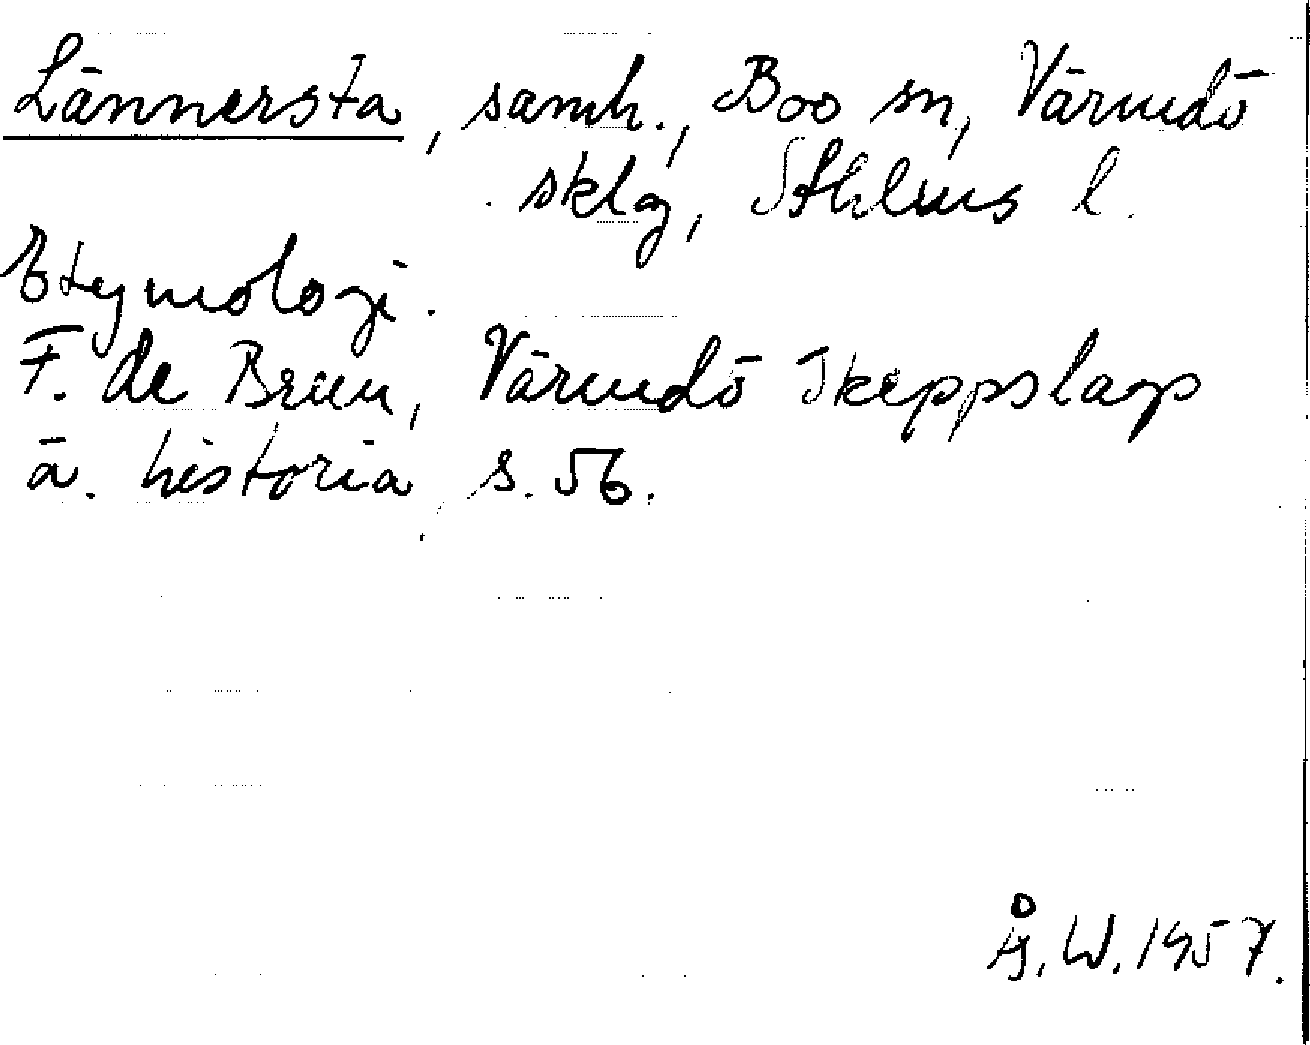 Lännersta, samh., Boo sn, Värmdö
sklg, Sthlms l.
Etymologi.
F. de Brun, Värmdö Skeppslags
ä. historia s. 56.
Å. W. 1957.